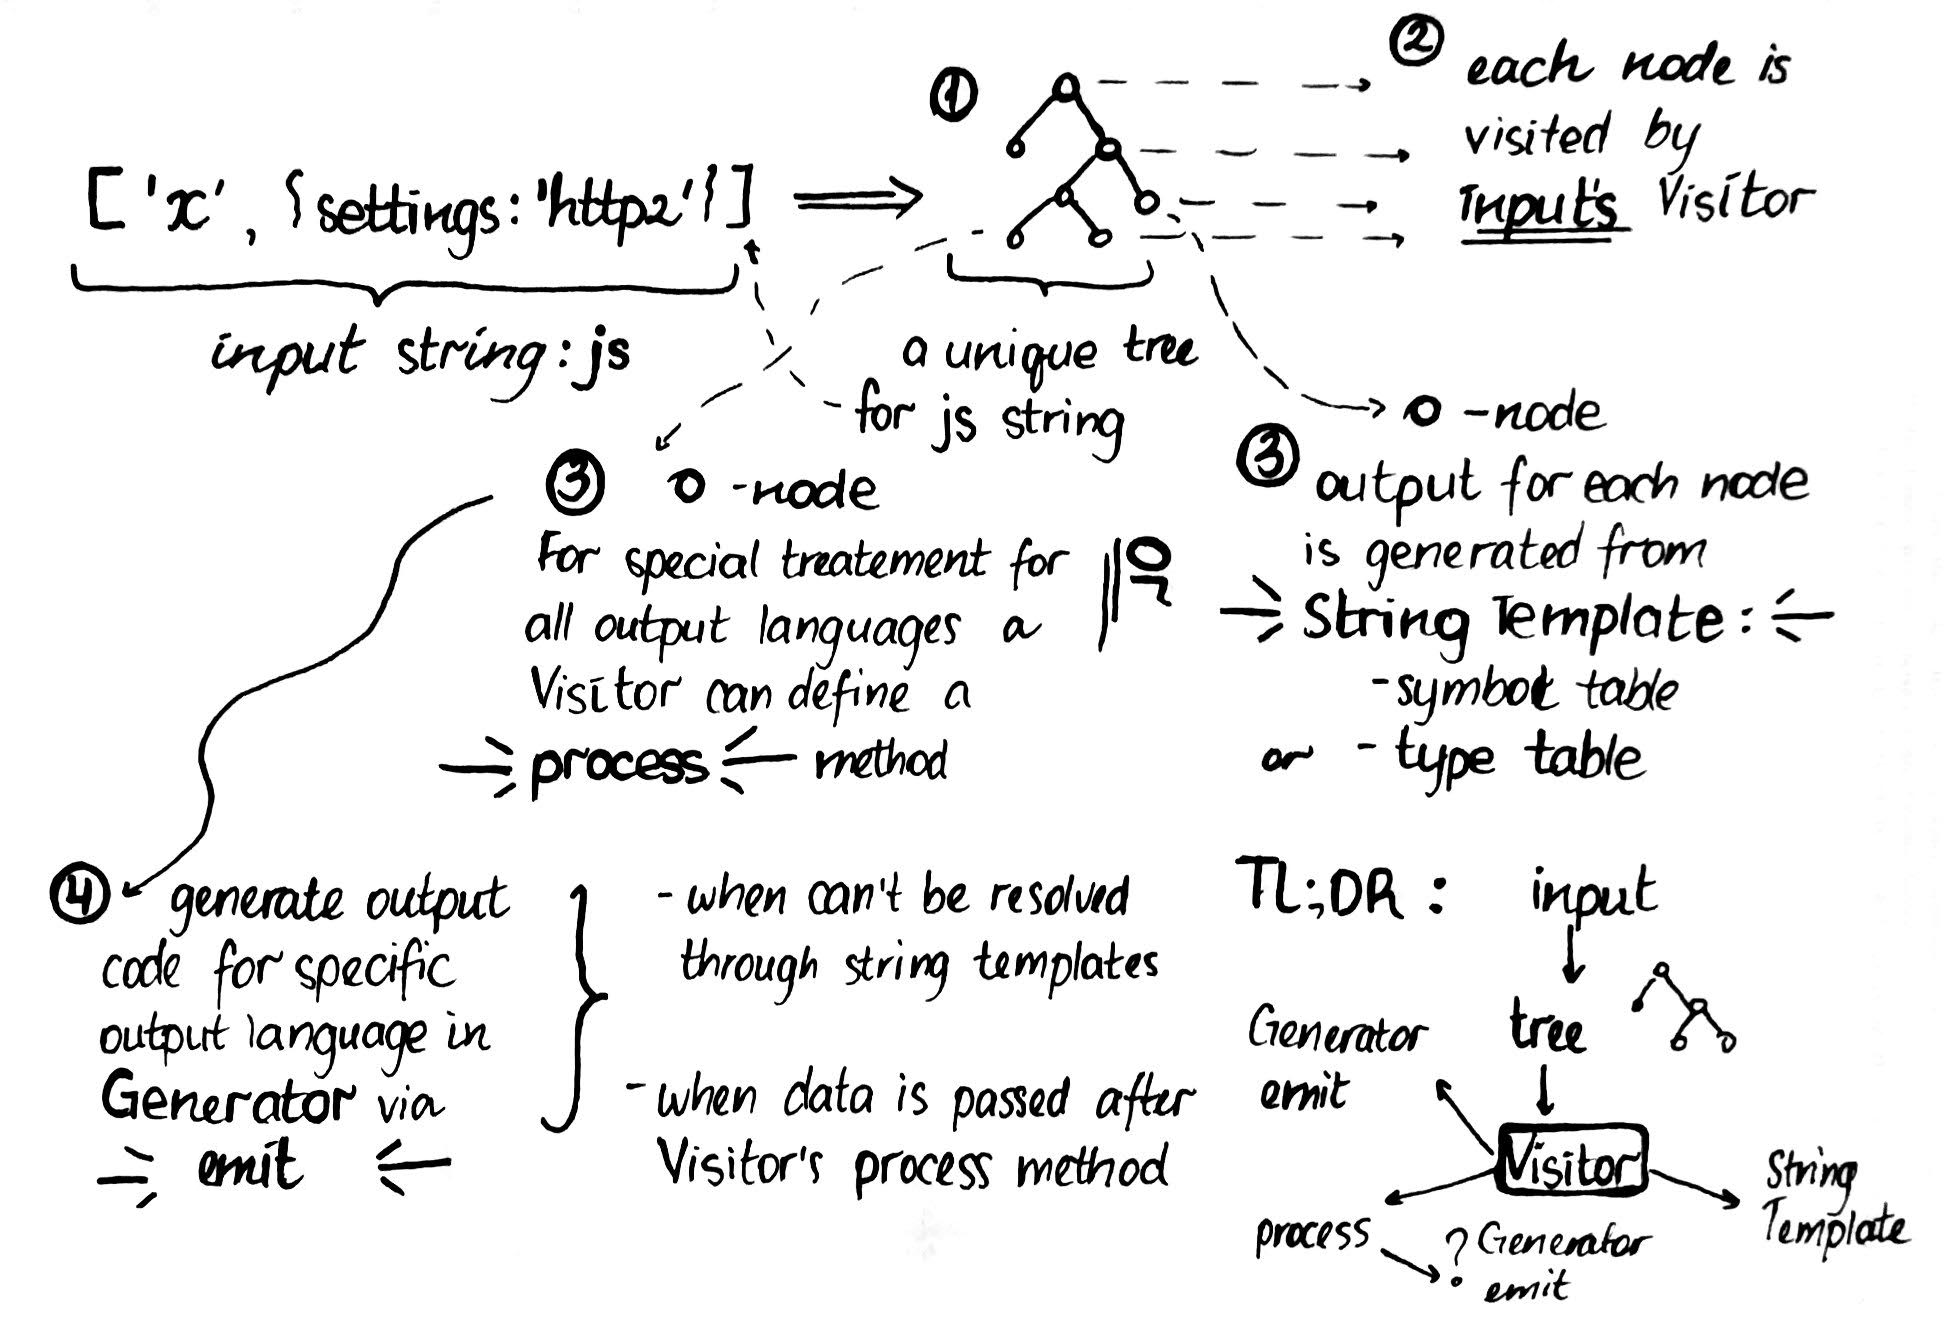 ['x', {settings:'http2'}]
input string: js
①
a unique tree
for js string
② each node is
visited by
Input's Visitor
③ o -node
For special treatement for
all output languages a
Visitor can define a
process method
or
o -node
③ output for each node
is generated from
String Template:
- symbol table
or - type table
④ generate output
code for specific
output language in
Generator via
emit
- when can't be resolved
through string templates
- when data is passed after
Visitor's process method
TL;DR: input
tree
Generator
emit
Visitor
String
Template
process
? Generator
emit